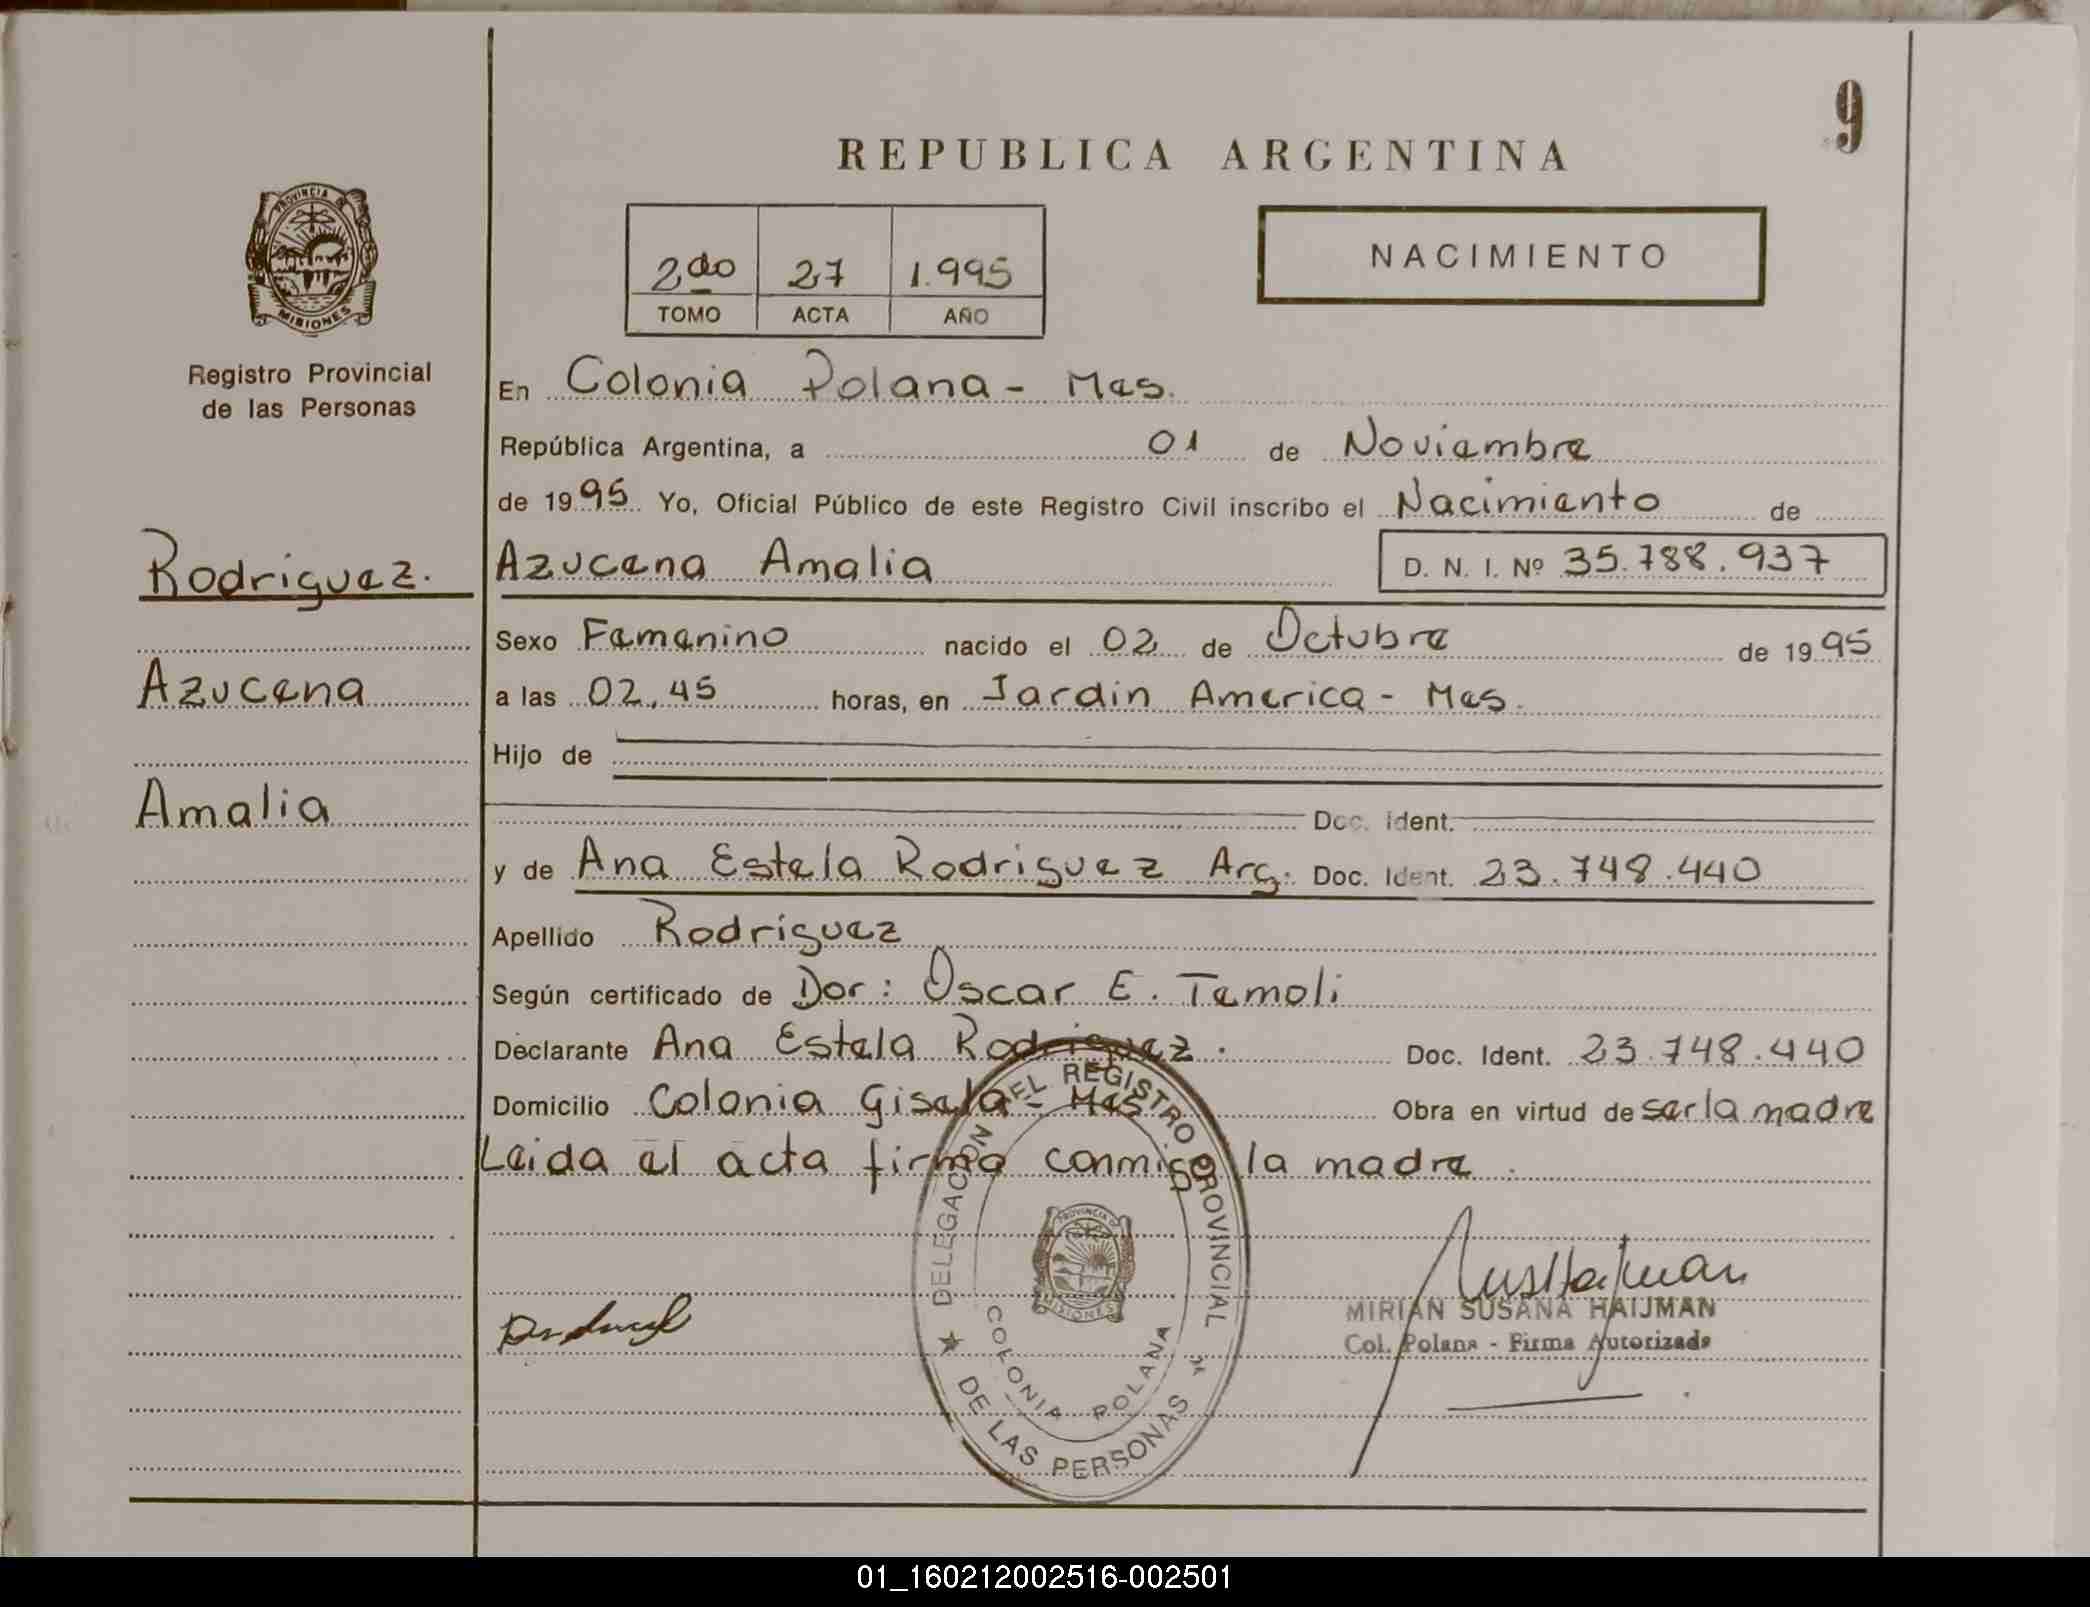 9
REPUBLICA ARGENTINA
PROVINCIA DE
MISIONES
2do 27 1.995
TOMO ACTA AÑO
NACIMIENTO
Registro Provincial
de las Personas
En Colonia Polana - Mes.
República Argentina, a 01 de Noviembre
de 1995 Yo, Oficial Público de este Registro Civil inscribo el Nacimiento de
Rodriguez.
Azucena Amalia D. N. I. Nº 35.788.937
Sexo Femenino nacido el 02 de Octubre de 1995
Azucena
a las 02,45 horas, en Jardin America - Mes.
Hijo de
Amalia
Doc. Ident.
y de Ana Estela Rodriguez Arg. Doc. Ident. 23.748.440
Apellido Rodriguez
Según certificado de Dor: Oscar E. Temoli
Declarante Ana Estela Rodriguez. Doc. Ident. 23.748.440
Domicilio Colonia Gisela - Mes Obra en virtud de ser la madre
Leida el acta firma conmigo la madre.
DELEGACION DEL REGISTRO PROVINCIAL
DE LAS PERSONAS
COLONIA POLANA
PROVINCIA DE
MISIONES
MIRIAN SUSANA HAIJMAN
Col. Polana - Firma Autorizada
01_160212002516-002501